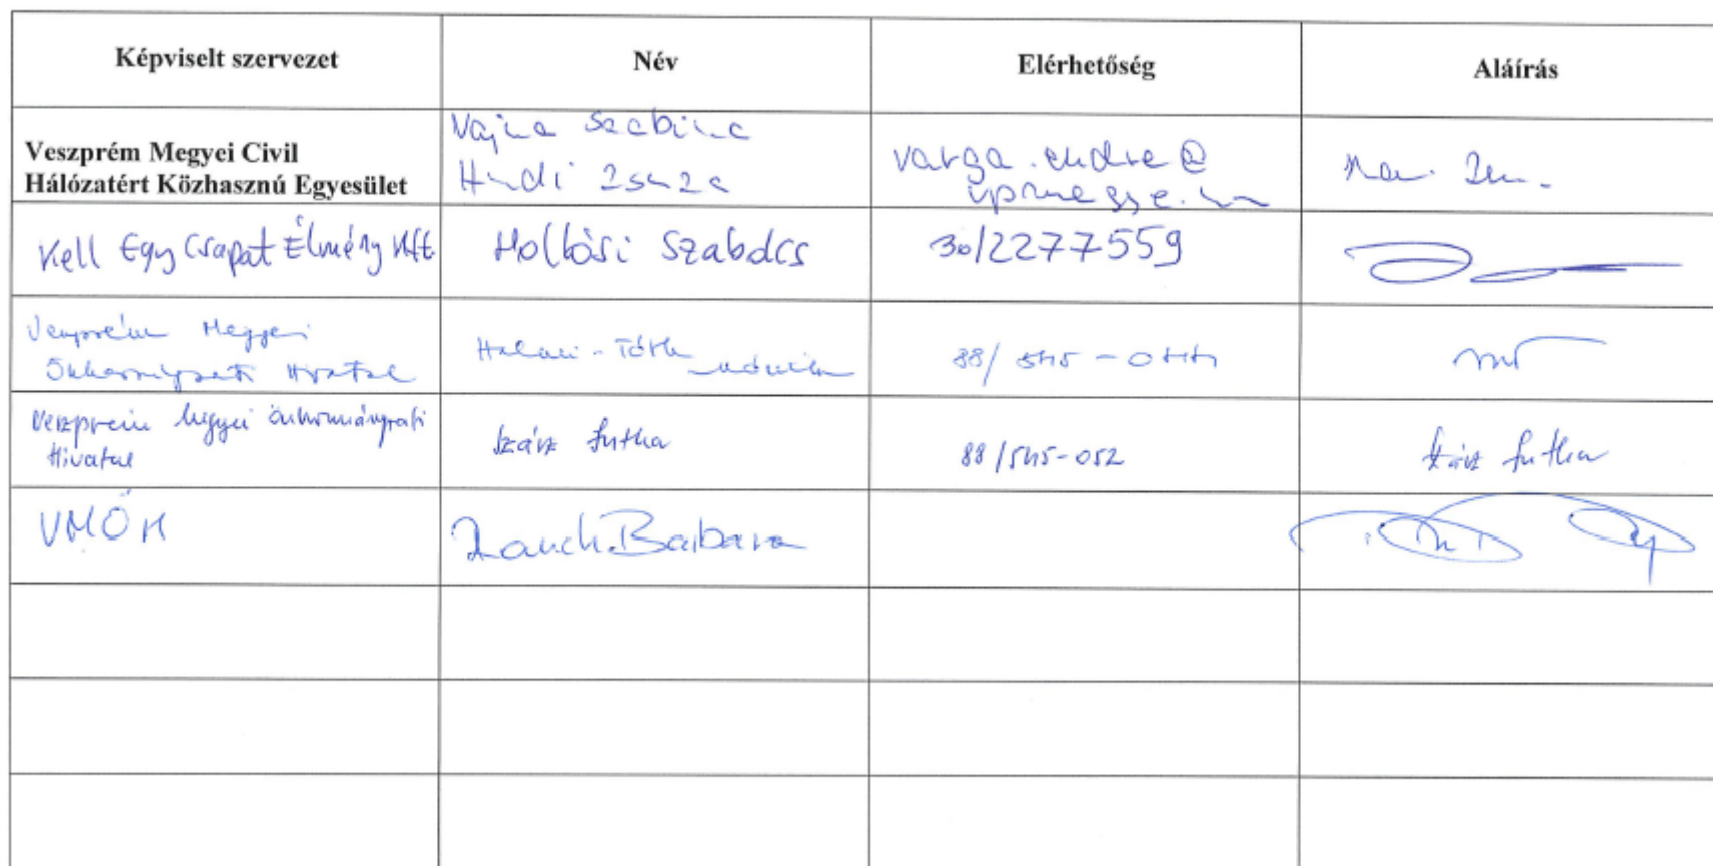 Képviselt szervezet Név Elérhetőség Aláírás
Vajna Szabina
Veszprém Megyei Civil
Hálózatért Közhasznú Egyesület
Hudi Zsuzsa
varga.endre@
vpmegye.hu
Kell Egy Csapat Élmény Kft. Hollósi Szabolcs 30/2277559
Veszprém Megyei
Önkormányzati Hivatal
Halasi-Tóth
88/545-044
Veszprém Megyei Önkormányzati
Hivatal
Szász Jutka 88/545-052 Szász Jutka
VMÖH Barbara